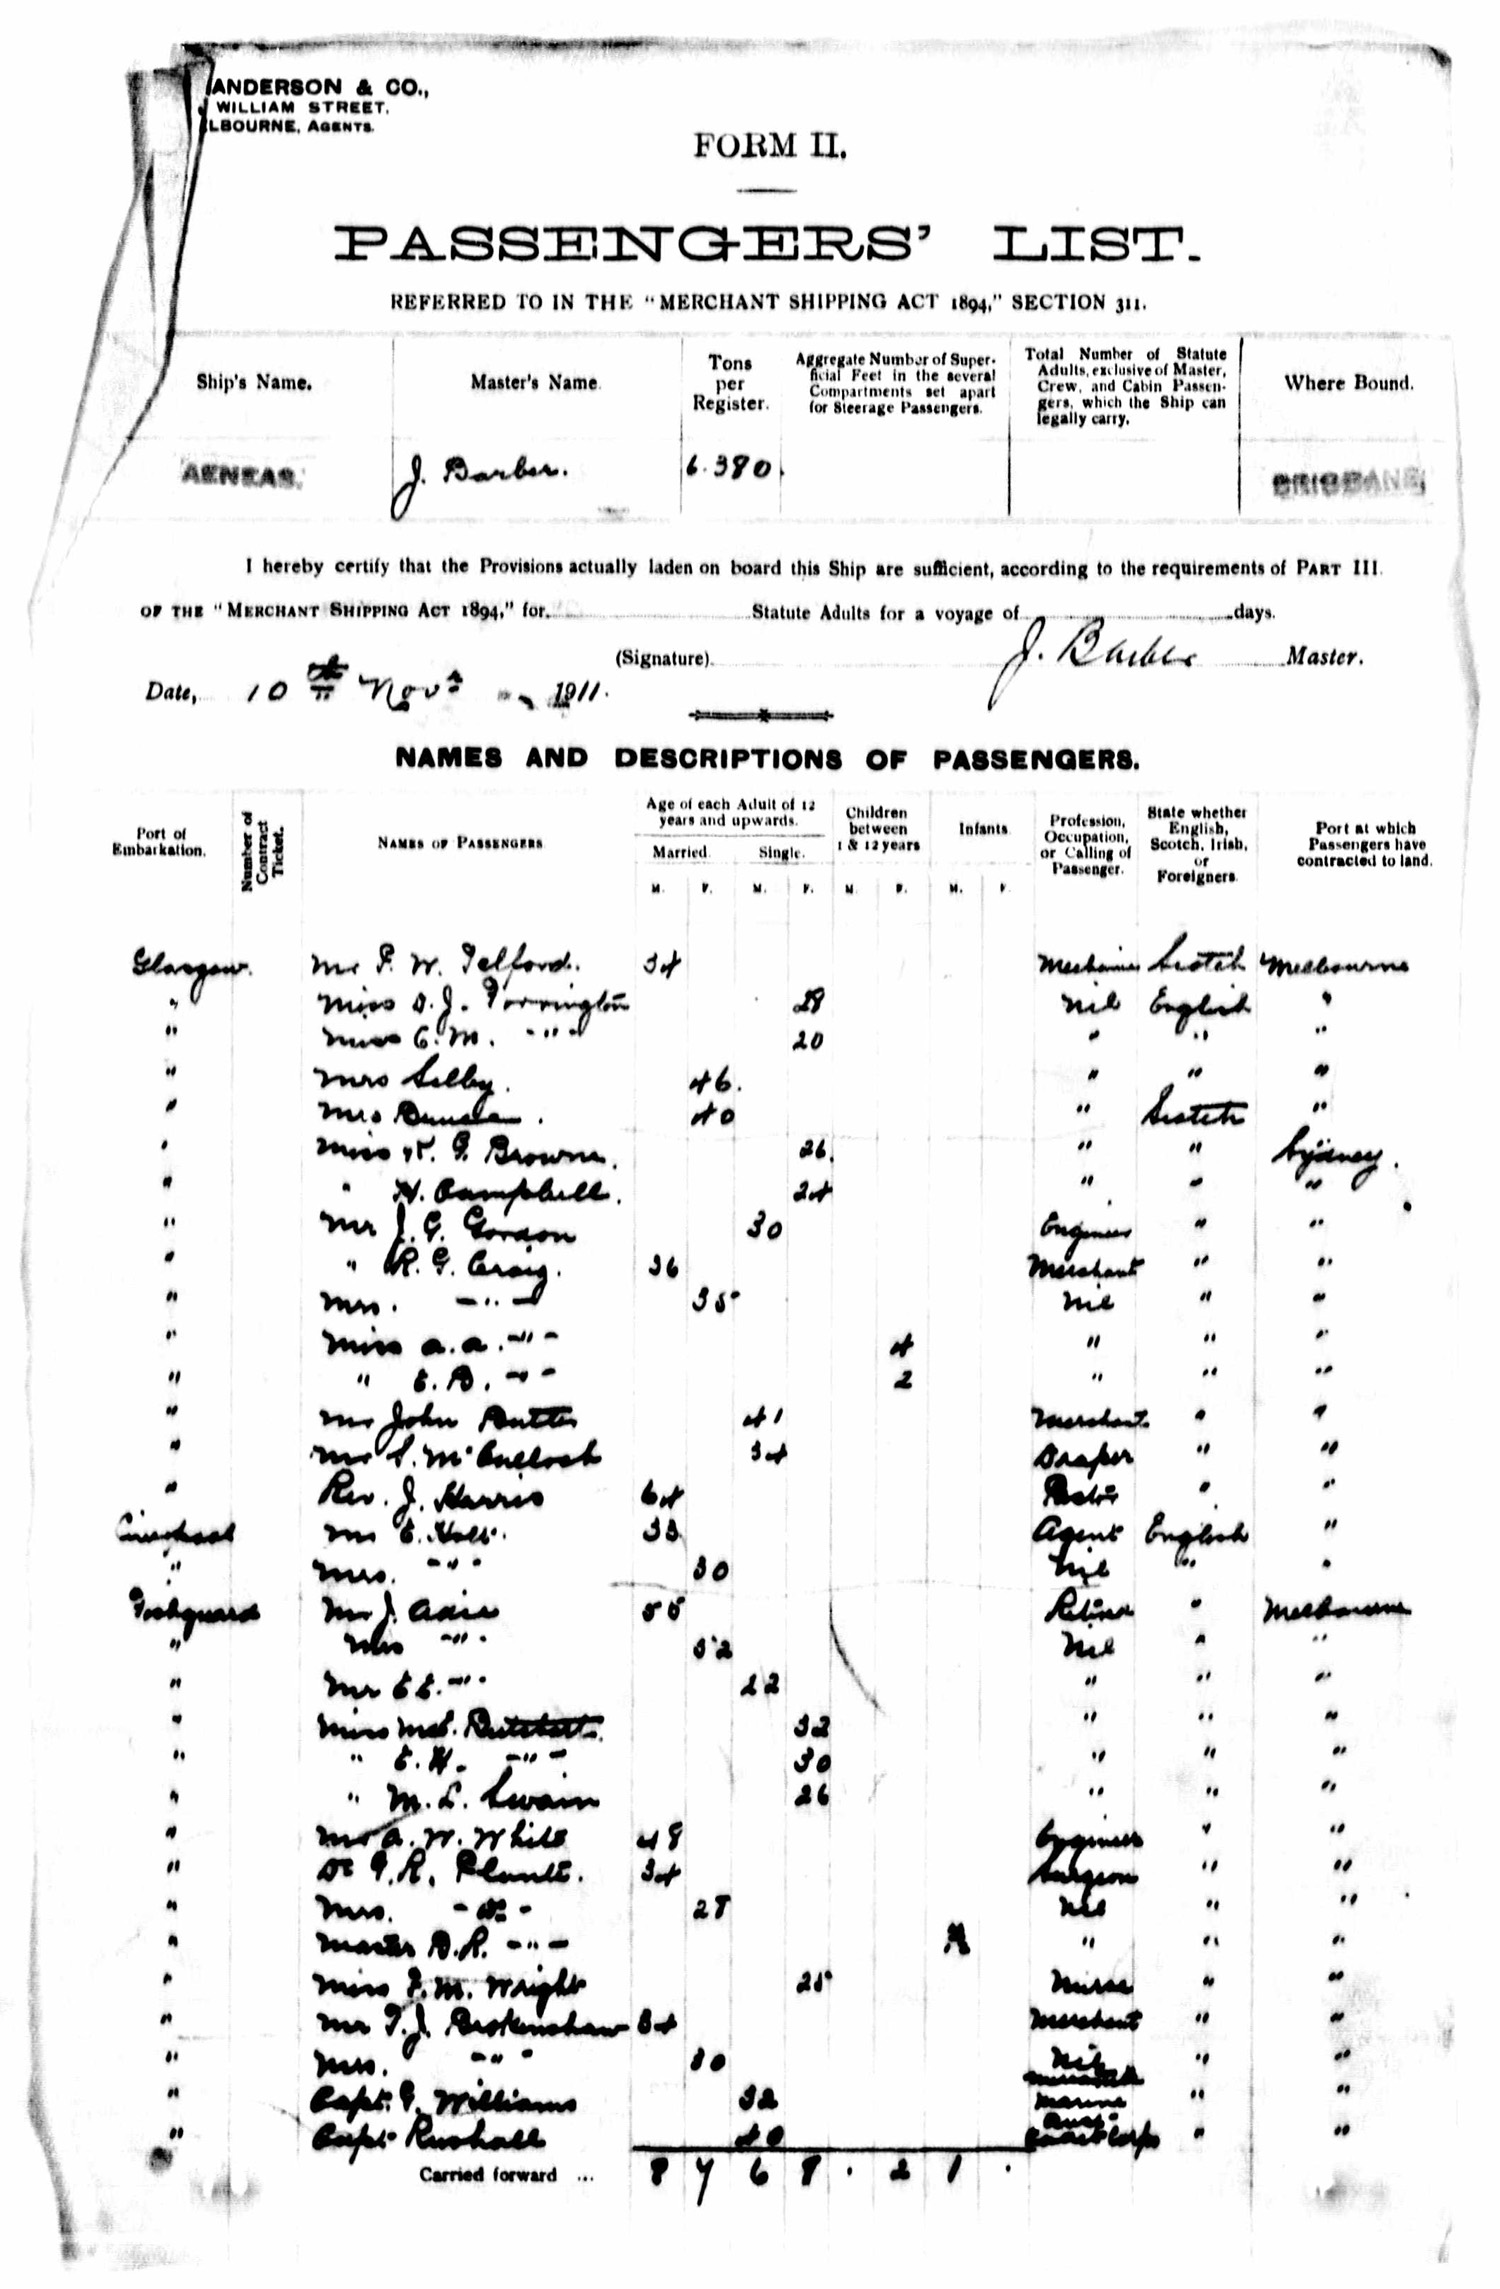 ANDERSON & CO.,
WILLIAM STREET,
LBOURNE, AGENTS.
FORM II.
PASSENGERS' LIST.
REFERRED TO IN THE "MERCHANT SHIPPING ACT 1894," SECTION 311.
Ship's Name. Master's Name. Tons per Register. Aggregate Number of Superficial Feet in the several Compartments set apart for Steerage Passengers. Total Number of Statute Adults, exclusive of Master, Crew, and Cabin Passengers, which the Ship can legally carry. Where Bound.
AENEAS. J. Barber. 6.380. BRISBANE
I hereby certify that the Provisions actually laden on board this Ship are sufficient, according to the requirements of PART III.
OF THE "MERCHANT SHIPPING ACT 1894," for Statute Adults for a voyage of days.
(Signature) J. Barber Master.
Date, 10th Novr 1911.
NAMES AND DESCRIPTIONS OF PASSENGERS.
Port of Embarkation. Number of Contract Ticket. NAMES OF PASSENGERS Age of each Adult of 12 years and upwards. Children between 1 & 12 years Infants Profession, Occupation, or Calling of Passenger. State whether English, Scotch, Irish, or Foreigners. Port at which Passengers have contracted to land.
Married. Single.
M. F. M. F. M. F. M. F.
Glasgow. Mr F. W. Telford. 34 Mechanic Scotch Melbourne
" Miss D. J. Torrington 28 Nil English "
" Miss C. M. -"- 20 " " "
" Mrs Selby. 46. " " "
" Mrs Duncan. 40 " Scotch "
" Miss G. Browne. 26. " " Sydney.
" " H. Campbell. 24 " " "
" Mr J. G. Gordon 30 Engineer " "
" " R. G. Craig. 36 Merchant " "
" Mrs. -"- 35 Nil " "
" Miss A. A. -"- 4 " " "
" " E. D. -"- 2 " " "
" Mr John 41 Merchant " "
" Mr S. McCulloch 34 Draper " "
" Rev. J. Harris 64 Pastor " "
Liverpool Mr E. Holt. 33 Agent English "
" Mrs. -"- 30 Nil " "
Fishguard Mr J. Adie 55 Retired " Melbourne
" Mrs -"- 52 Nil " "
" Mr E E. -"- 22 " " "
" Miss Butchart. 32 " " "
" " E. H. -"- 30 " " "
" " M. L. Swain 26 " " "
" Mr A. W. White 48 Engineer " "
" Dr G. R. Plante. 34 Surgeon " "
" Mrs. - Do - 28 Nil " "
" Master D. R. -"- " " "
" Miss F. M. Wright 25 Nurse " "
" Mr T. J. Brokenshaw 34 Merchant " "
" Mrs. -"- 30 Nil " "
" Capt. G. Williams 32 Marine " "
" Capt Rushall 40 Aust. Corps " "
Carried forward ... 8 7 6 8 . 2 1 .